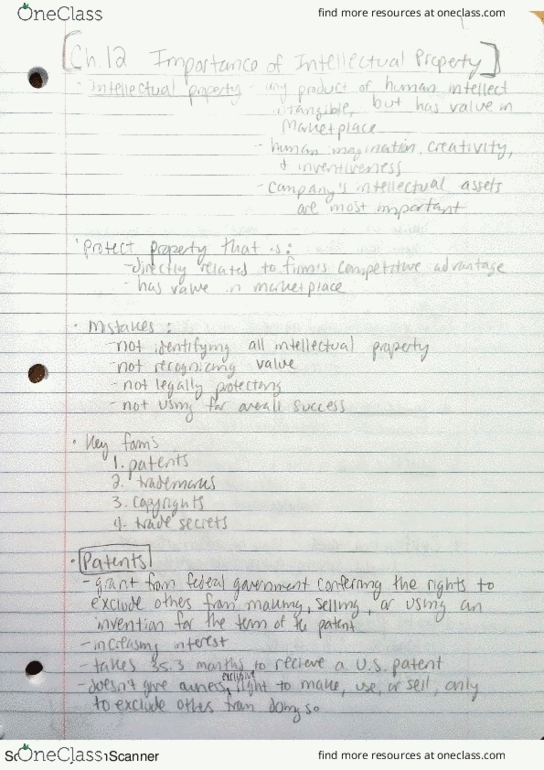 OneClass
find more resources at oneclass.com
[Ch.12 Importance of Intellectual Property]
· Intellectual property - any product of human intellect
intangible, but has value in
marketplace
- human imagination, creativity,
& inventiveness
- company's intellectual assets
are most important
· Protect property that is:
- directly related to firm's competitive advantage
- has value in marketplace
· Mistakes:
- not identifying all intellectual property
- not recognizing value
- not legally protecting
- not using for overall success
· Key forms
1. patents
2. trademarks
3. copyrights
4. trade secrets
· Patents
- grant from federal government conferring the rights to
exclude others from making, selling, or using an
invention for the term of the patent
- increasing interest
- takes 35.3 months to recieve a U.S. patent
- doesn't give owners exclusive right to make, use, or sell, only
to exclude others from doing so
OneClass
Scanner
find more resources at oneclass.com